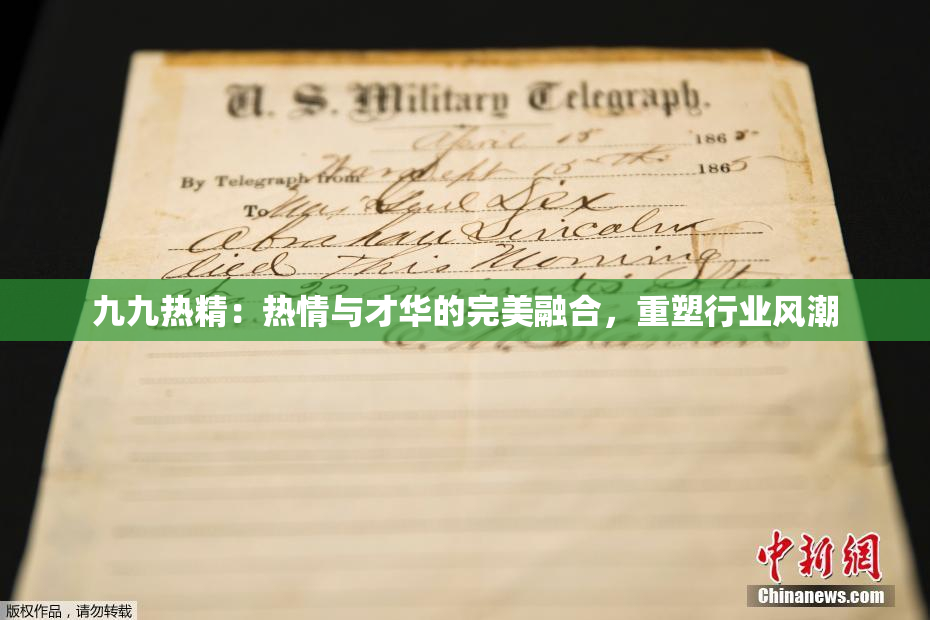 U. S. Military Telegraph.
April 15 1865
By Telegraph from War Dept 15th 1865
To Maj Genl Dix
Abraham Lincoln
died This Morning
22 minutes after
九九热精：热情与才华的完美融合，重塑行业风潮
E. M. Stanton
中新网
Chinanews.com
版权作品，请勿转载